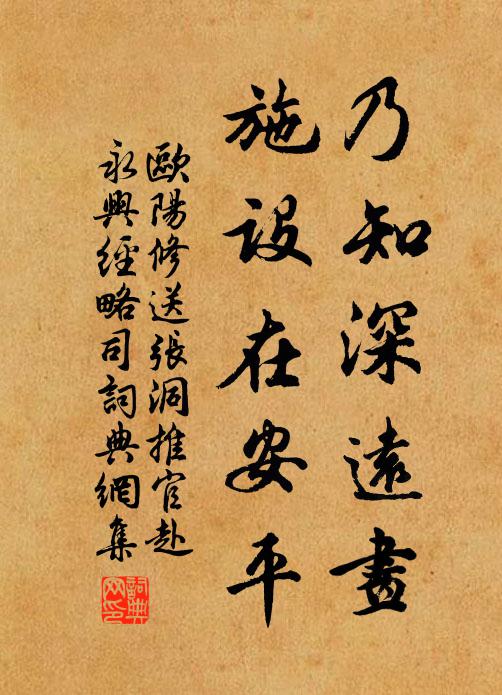 乃知深遠畫
施設在安平
歐陽修送張洞推官赴
永興經略司詞典網集
詞典
网印